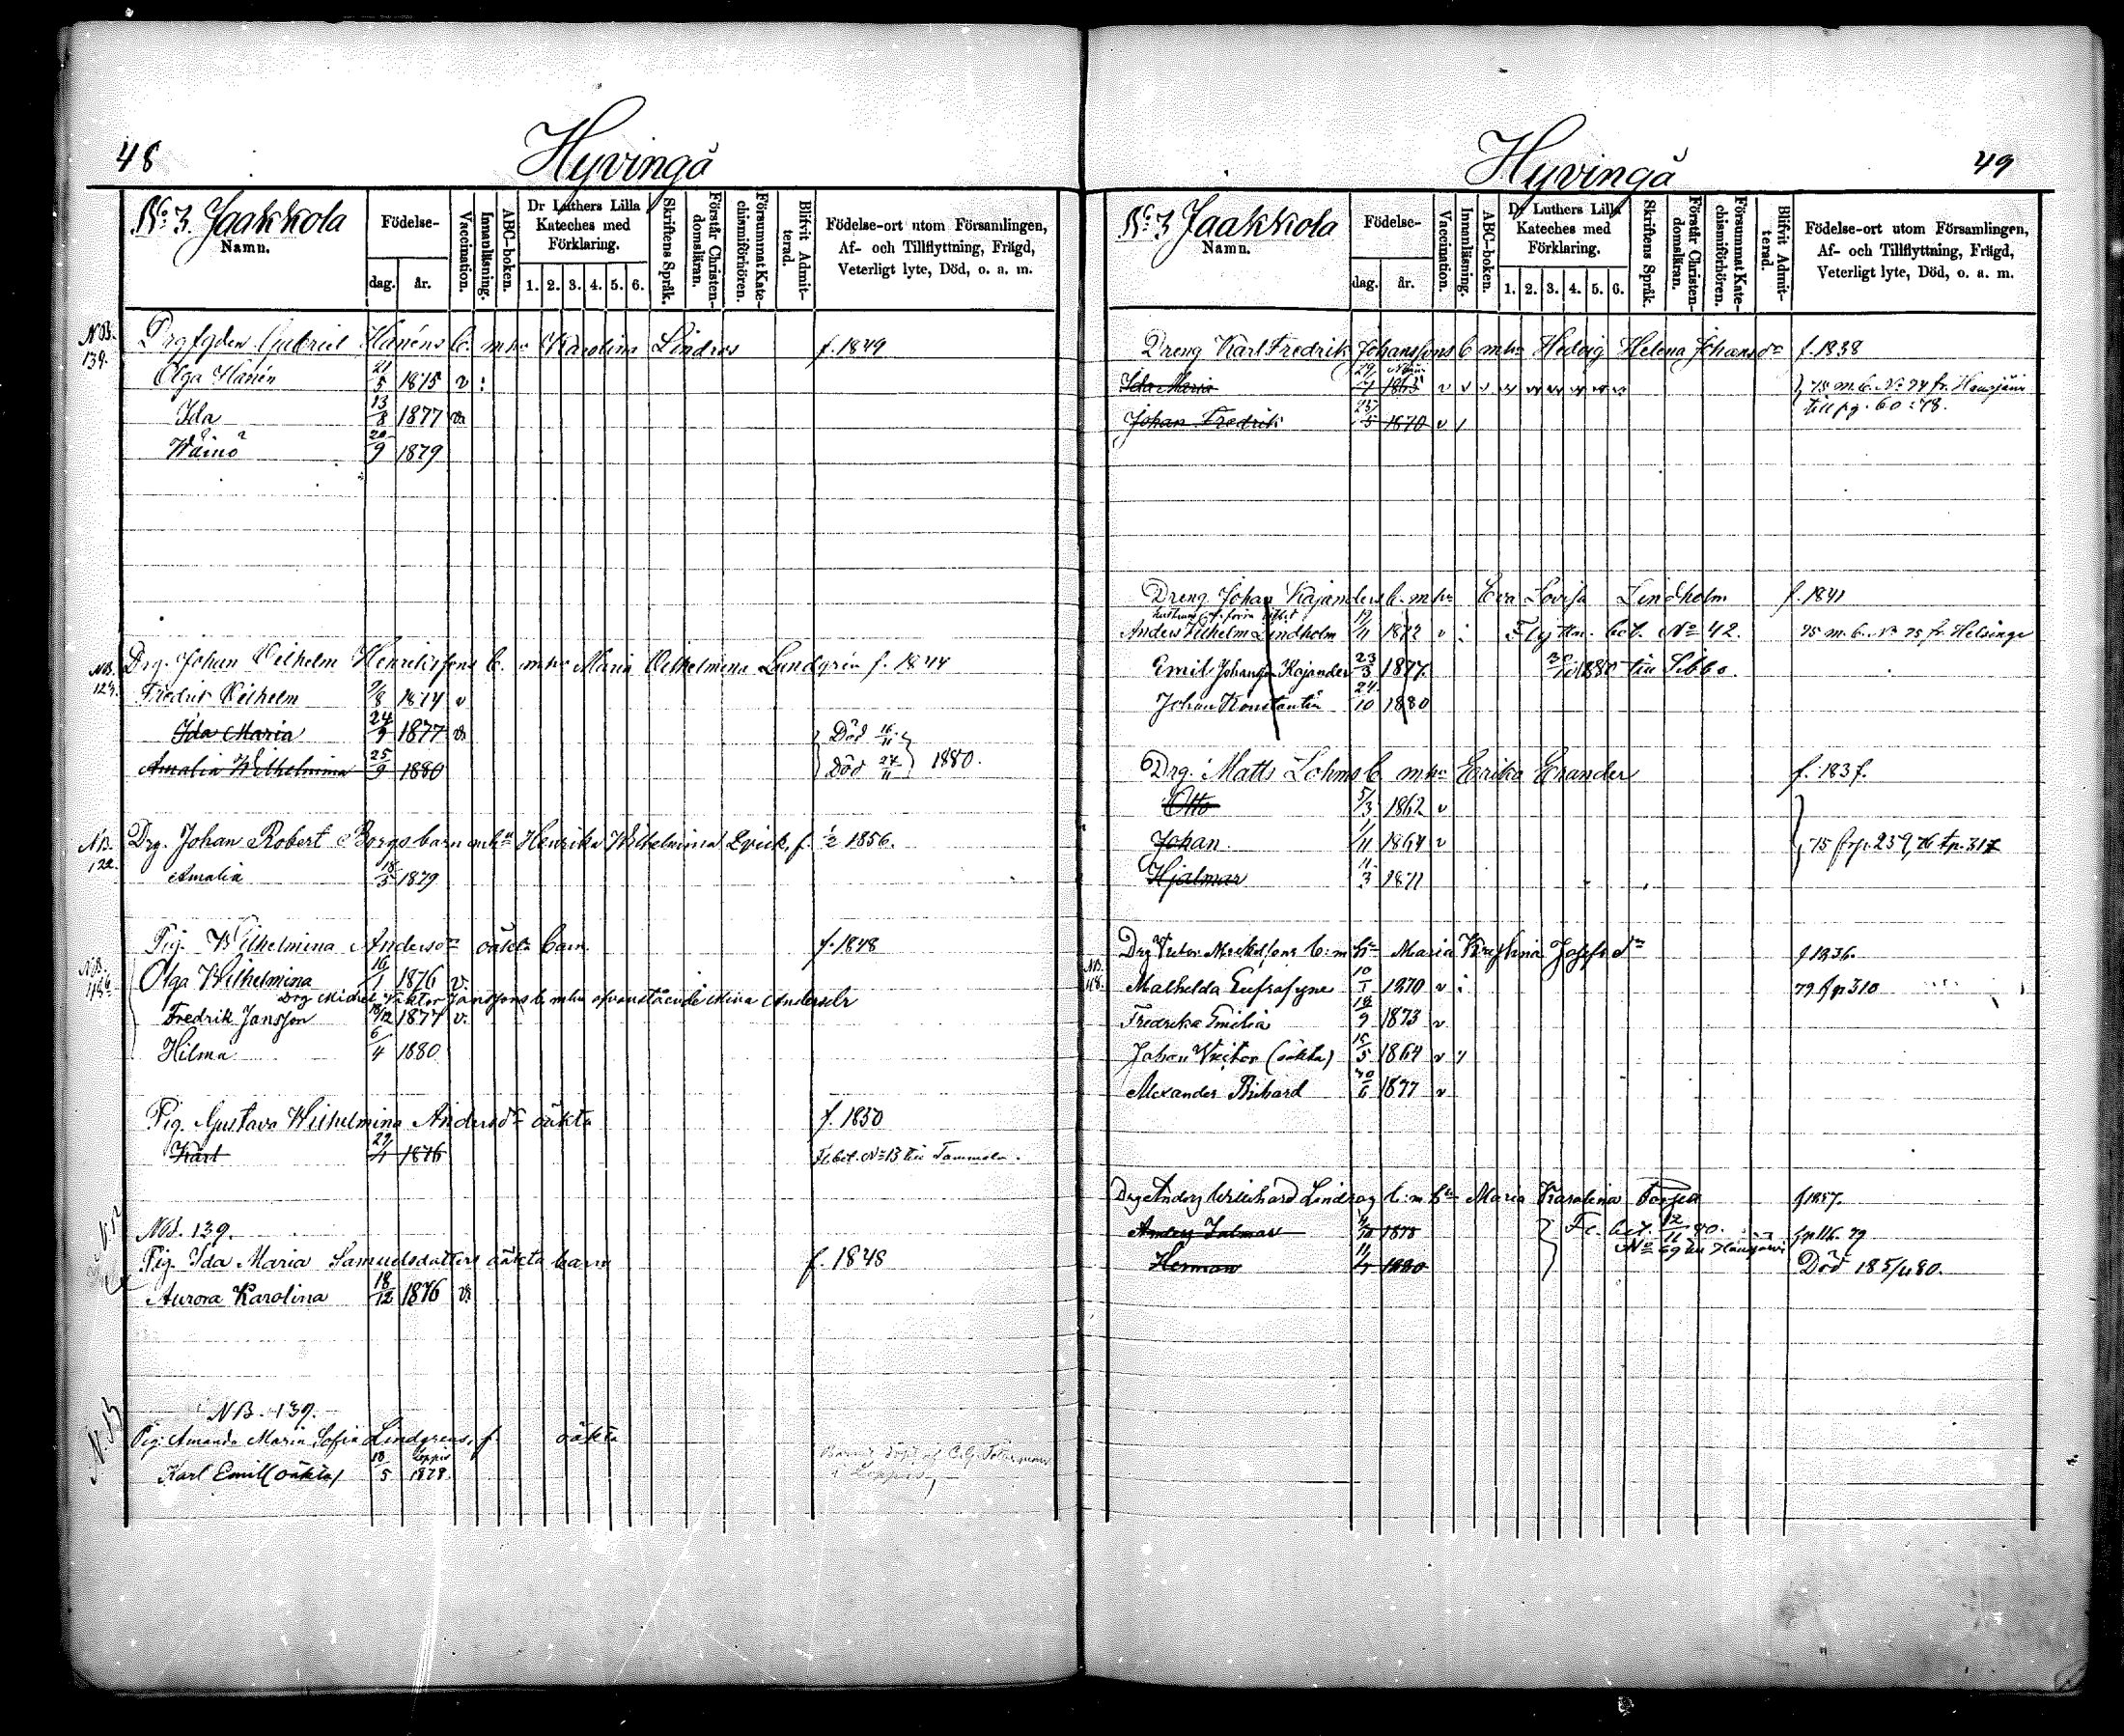 48
Hyvingå
No 3. Jaakkola
Namn.
Födelse-
dag.
år.
Vaccination.
Innanläsning.
ABC-boken.
Dr Luthers Lilla
Kateches med
Förklaring.
1. 2. 3. 4. 5. 6.
Skriftens Språk.
Förstår Christen-
domsläran.
Försummat Kate-
chismiförhören.
Blifvit Admit-
terad.
Födelse-ort utom Församlingen,
Af- och Tillflyttning, Frägd,
Veterligt lyte, Död, o. a. m.
NB. 139.
Gabriel Hanéns b. m hu Karolina Lindros f. 1849
Olga Hanén 21/5 1875 v :
Ida 13/8 1877 v
Wäinö 20/9 1879
NB. 123.
Drg. Johan Vilhelm Henrikssons b. m hu Maria Vilhelmina Lundgrén f. 1844
Fredrik Vilhelm 9/8 1874 v
Ida Maria 24/3 1877 v Död 16/11
Amalia Wilhelmina 25/9 1880 Död 24/11 1880.
NB. 122.
Drg. Johan Robert Borgs barn m hu Henrika Wilhelmina f. 1/2 1856.
Amalia 18/5 1879
Pig. Wilhelmina Andersdr oäkta barn f. 1848
NB.
Olga Wilhelmina 16/1 1876 v.
Drg Michel Viktor Janssons b m hu ofvanstående Mina Andersdr
Fredrik Jansson 18/12 1877 v.
Hilma 6/4 1880
Pig. Gustava Wilhelmina Andersdr oäkta f. 1850
Karl 29/1 1876 Fl. bet. No 13 till Tammela.
NB. 139.
Pig. Ida Maria Samuelsdotters oäkta barn f. 1848
Aurora Karolina 18/12 1876 v.
N. 13
NB. 139.
Pig. Amanda Maria Sofia Lindgrens, f. oäkta
Loppis
Karl Emil (oäkta) 18/5 1878.
49
Hyvingå
No 3 Jaakkola
Namn.
Födelse-
dag.
år.
Vaccination.
Innanläsning.
ABC-boken.
Dr Luthers Lilla
Kateches med
Förklaring.
1. 2. 3. 4. 5. 6.
Skriftens Språk.
Förstår Christen-
domsläran.
Försummat Kate-
chismiförhören.
Blifvit Admit-
terad.
Födelse-ort utom Församlingen,
Af- och Tillflyttning, Frägd,
Veterligt lyte, Död, o. a. m.
Dreng Karl Fredrik Johanssons b m hu Hedvig Helena Johansdr f. 1838
Ida Maria 1865 v v v 75 m. b. No 74 fr. Hausjärvi
till pg. 60 : 78.
Johan Fredrik 25/5 1870 v /
Dreng Johan Kajanders b. m hu Eva Lovisa Lindholm f. 1841
Anders Vilhelm Lindholm 1872 v : Flyttn. bet. No 42. 75 m. b. No 75 fr. Helsinge
Emil Johansson Kajander 23/3 1877. 1880 till Sibbo.
Johan Konstantin 24/10 1880
Drg. Matts Lohms b m hu Erika Enander
Otto 5/3 1862 v
Johan 1/11 1864 v 75 fr p. 259, 76 t p. 317
Hjalmar 11/3 1871
Drg Victor Michelssons b: m hu Maria Kristina Josefsdr f 1836.
NB. 118.
Mathelda Eufrosyne 10/1 1870 v : 79 fr p 310
Fredrika Emilia 18/9 1873 v
Johan Victor (oäkta) 15/5 1864 v /
Alexander Richard 30/6 1877 v
Drg Anders Wilhard Lindroos b: m hu Maria Karolina Forsell f 1857.
Anders Jalmar 1878 Fl. bet. 12/11 80.
No 69 till Hausjärvi
Herman 1880 Död 18 5/4 80.